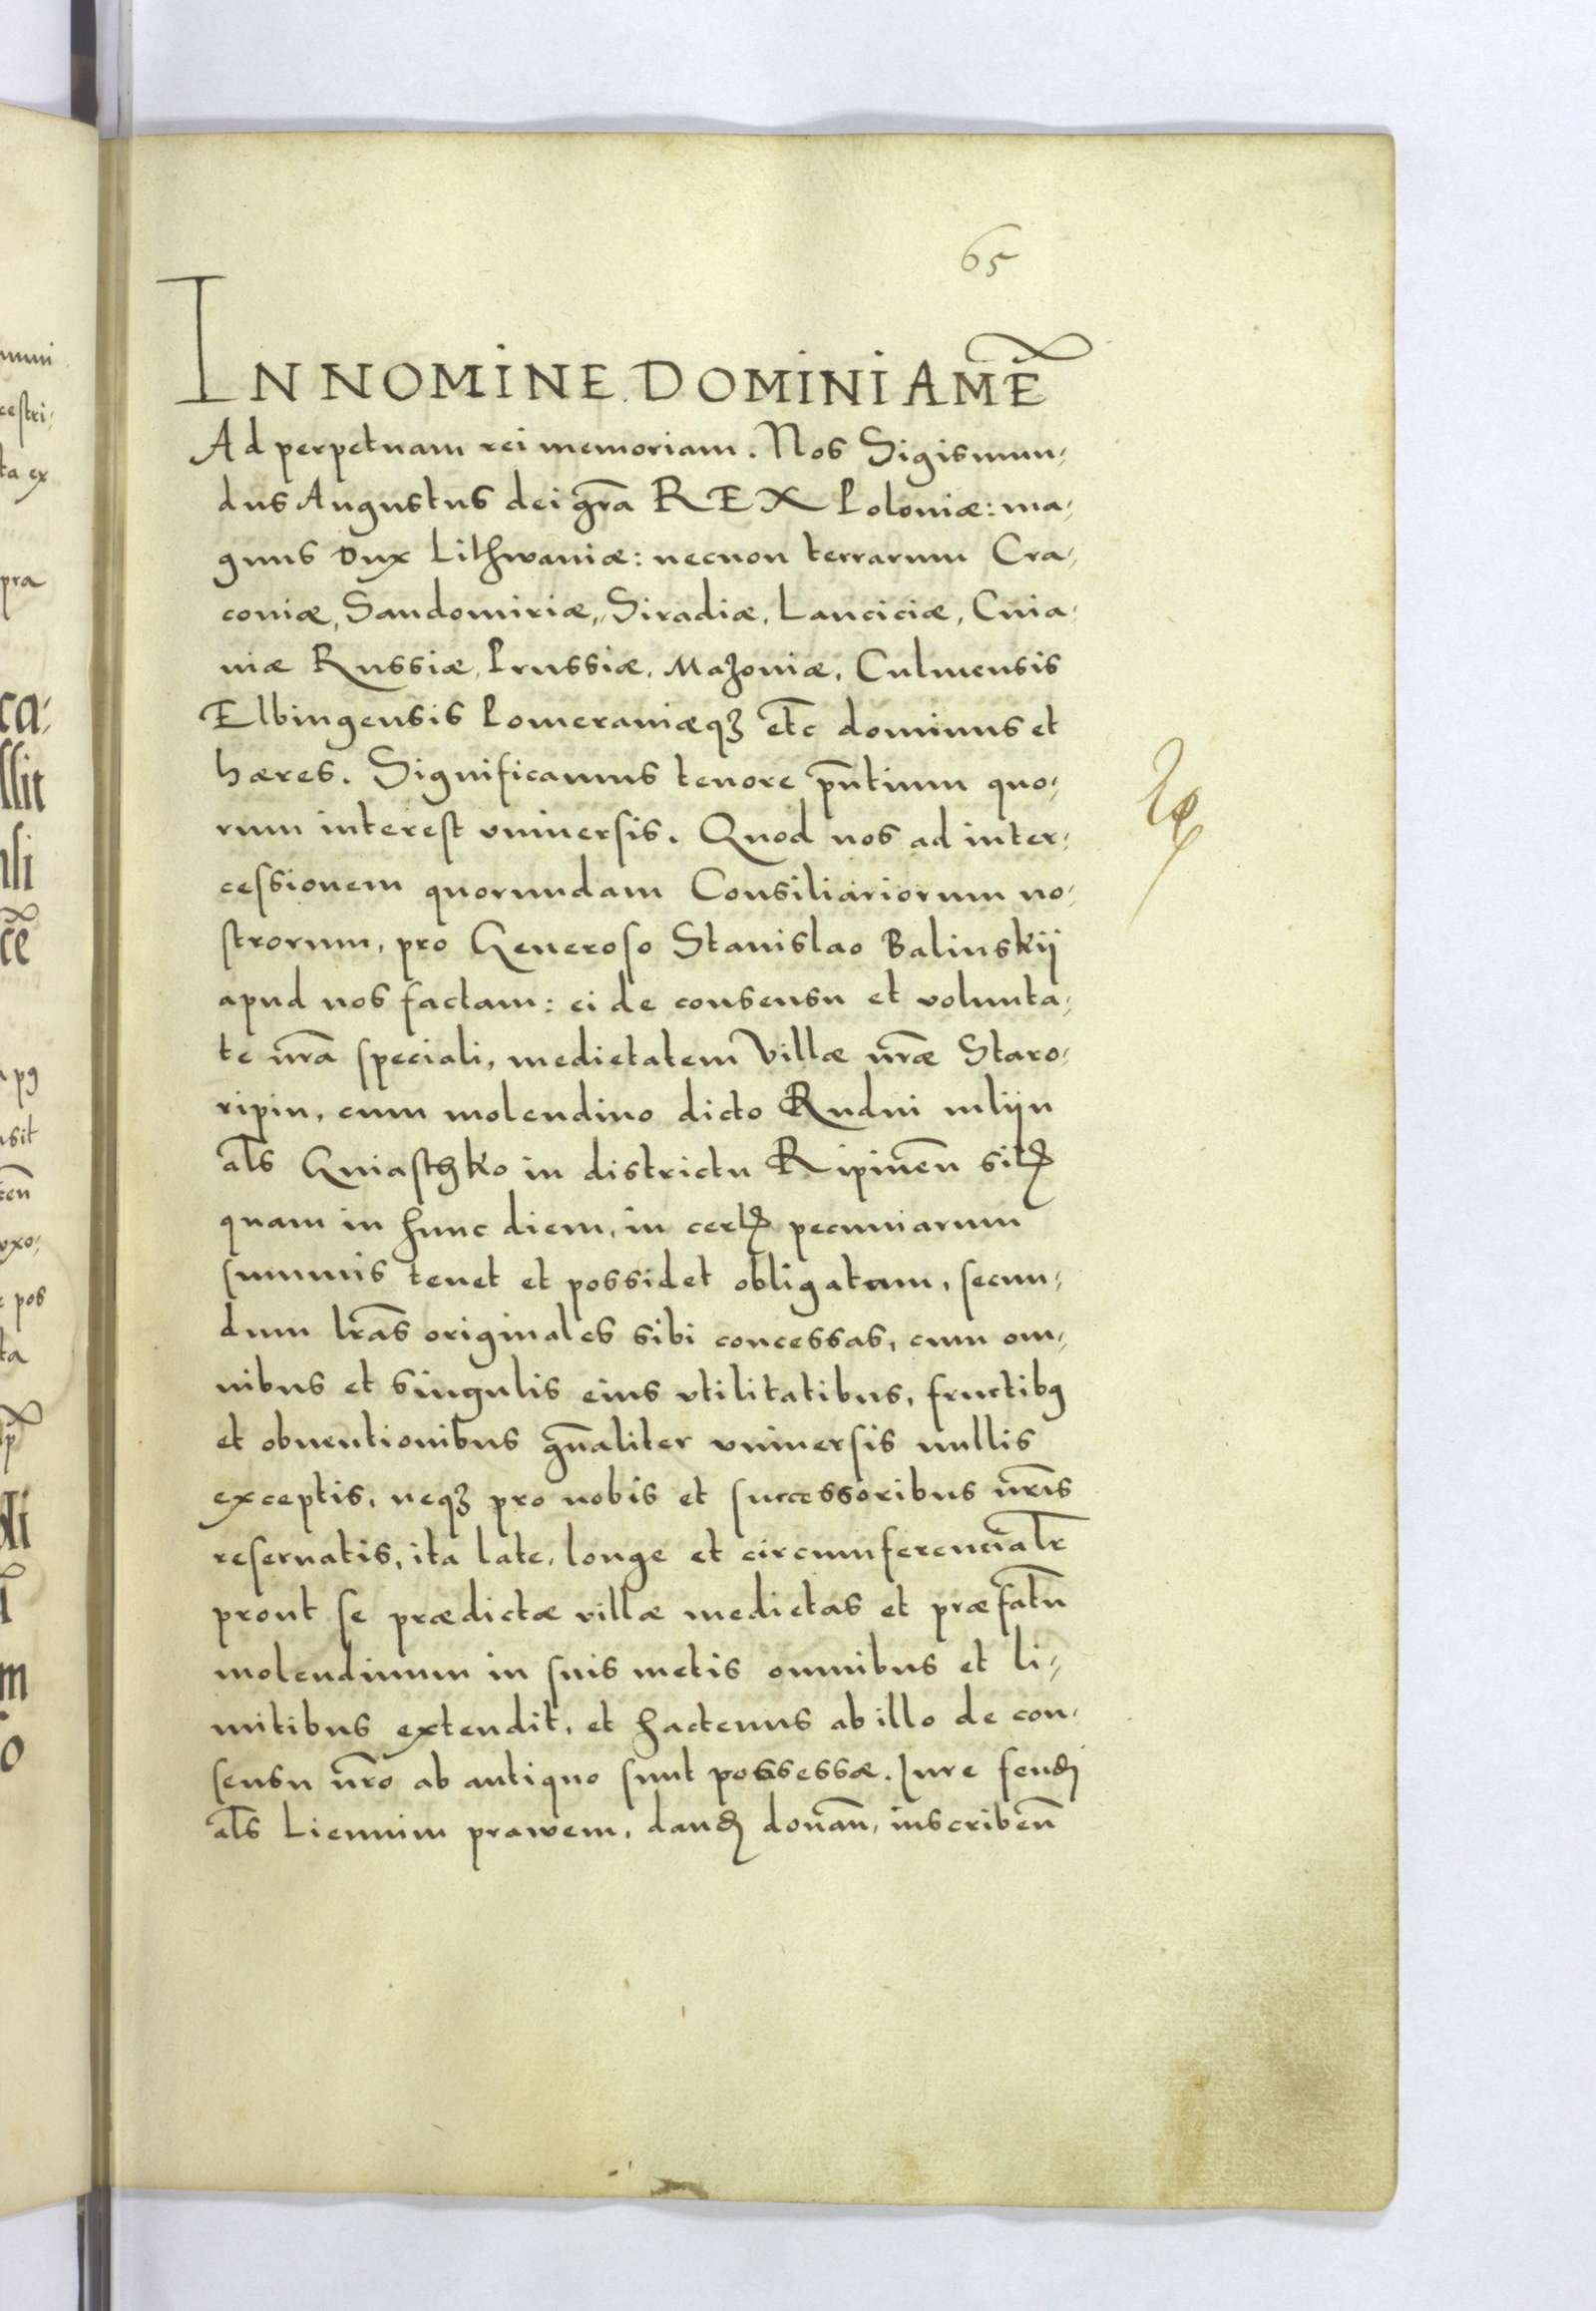 65
IN NOMINE DOMINI AMẼ
Ad perpetuam rei memoriam. Nos Sigismun⸗
dus Augustus dei gr̃a REX Poloniæ: ma⸗
gnus Dux Lithwaniæ: necnon terrarum Cra⸗
coniæ, Sandomiriæ, Siradiæ, Lanciciæ, Cuia⸗
uiæ Russiæ, Prussiæ, Mazoniæ, Culmensis
Elbingensis Pomeraniæqꝫ etc̃ dominus et
hæres. Significamus tenore pñtium quo⸗
rum interest vniuersis. Quod nos ad inter⸗
cessionem quorundam Consiliariorum no⸗
strorum, pro Generoso Stanislao Balinskij
apud nos factam: ei de consensu et volunta⸗
te nr̃a speciali, medietatem Villæ nr̃æ Staro⸗
ripin, cum molendino dicto Rudni mlijn
al̃s Gniasthko in districtu Ripineñ sitꝭ
quam in hunc diem, in certꝭ pecuniarum
summis tenet et possidet obligatam, secun⸗
dum lr̃as originales sibi concessas, cum om⸗
nibus et singulis eius vtilitatibus, fructibꝰ
et obuentionibus gñaliter vniuersis nullis
exceptis, neqꝫ pro nobis et successoribus nr̃is
reseruatis, ita late, longe et circumferencialr̃
prout se prædictæ villæ medietas et præfatũ
molendinum in suis metis omnibus et li⸗
mitibus extendit, et hactenus ab illo de con⸗
sensu nr̃o ab antiquo sunt possessæ. Iure feudꝭ
al̃s Liennim prawem, dandꝭ donañ, inscribeñ